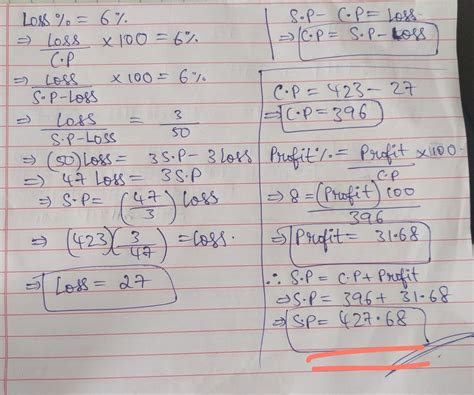 Loss % = 6%
⇒ Loss/C.P × 100 = 6%
⇒ Loss/S.P-Loss × 100 = 6%
⇒ Loss/S.P-Loss = 3/50
⇒ (50) Loss = 3S.P - 3Loss
⇒ 47 Loss = 3S.P
⇒ S.P = (47/3) Loss
⇒ (423)(3/47) = Loss.
⇒ Loss = 27
S.P - C.P = Loss
⇒ C.P = S.P - Loss
C.P = 423 - 27
⇒ C.P = 396
Profit% = Profit/C.P × 100
⇒ 8 = (Profit) 100/396
⇒ Profit = 31.68
∴ S.P = C.P + Profit
⇒ S.P = 396 + 31.68
⇒ S.P = 427.68